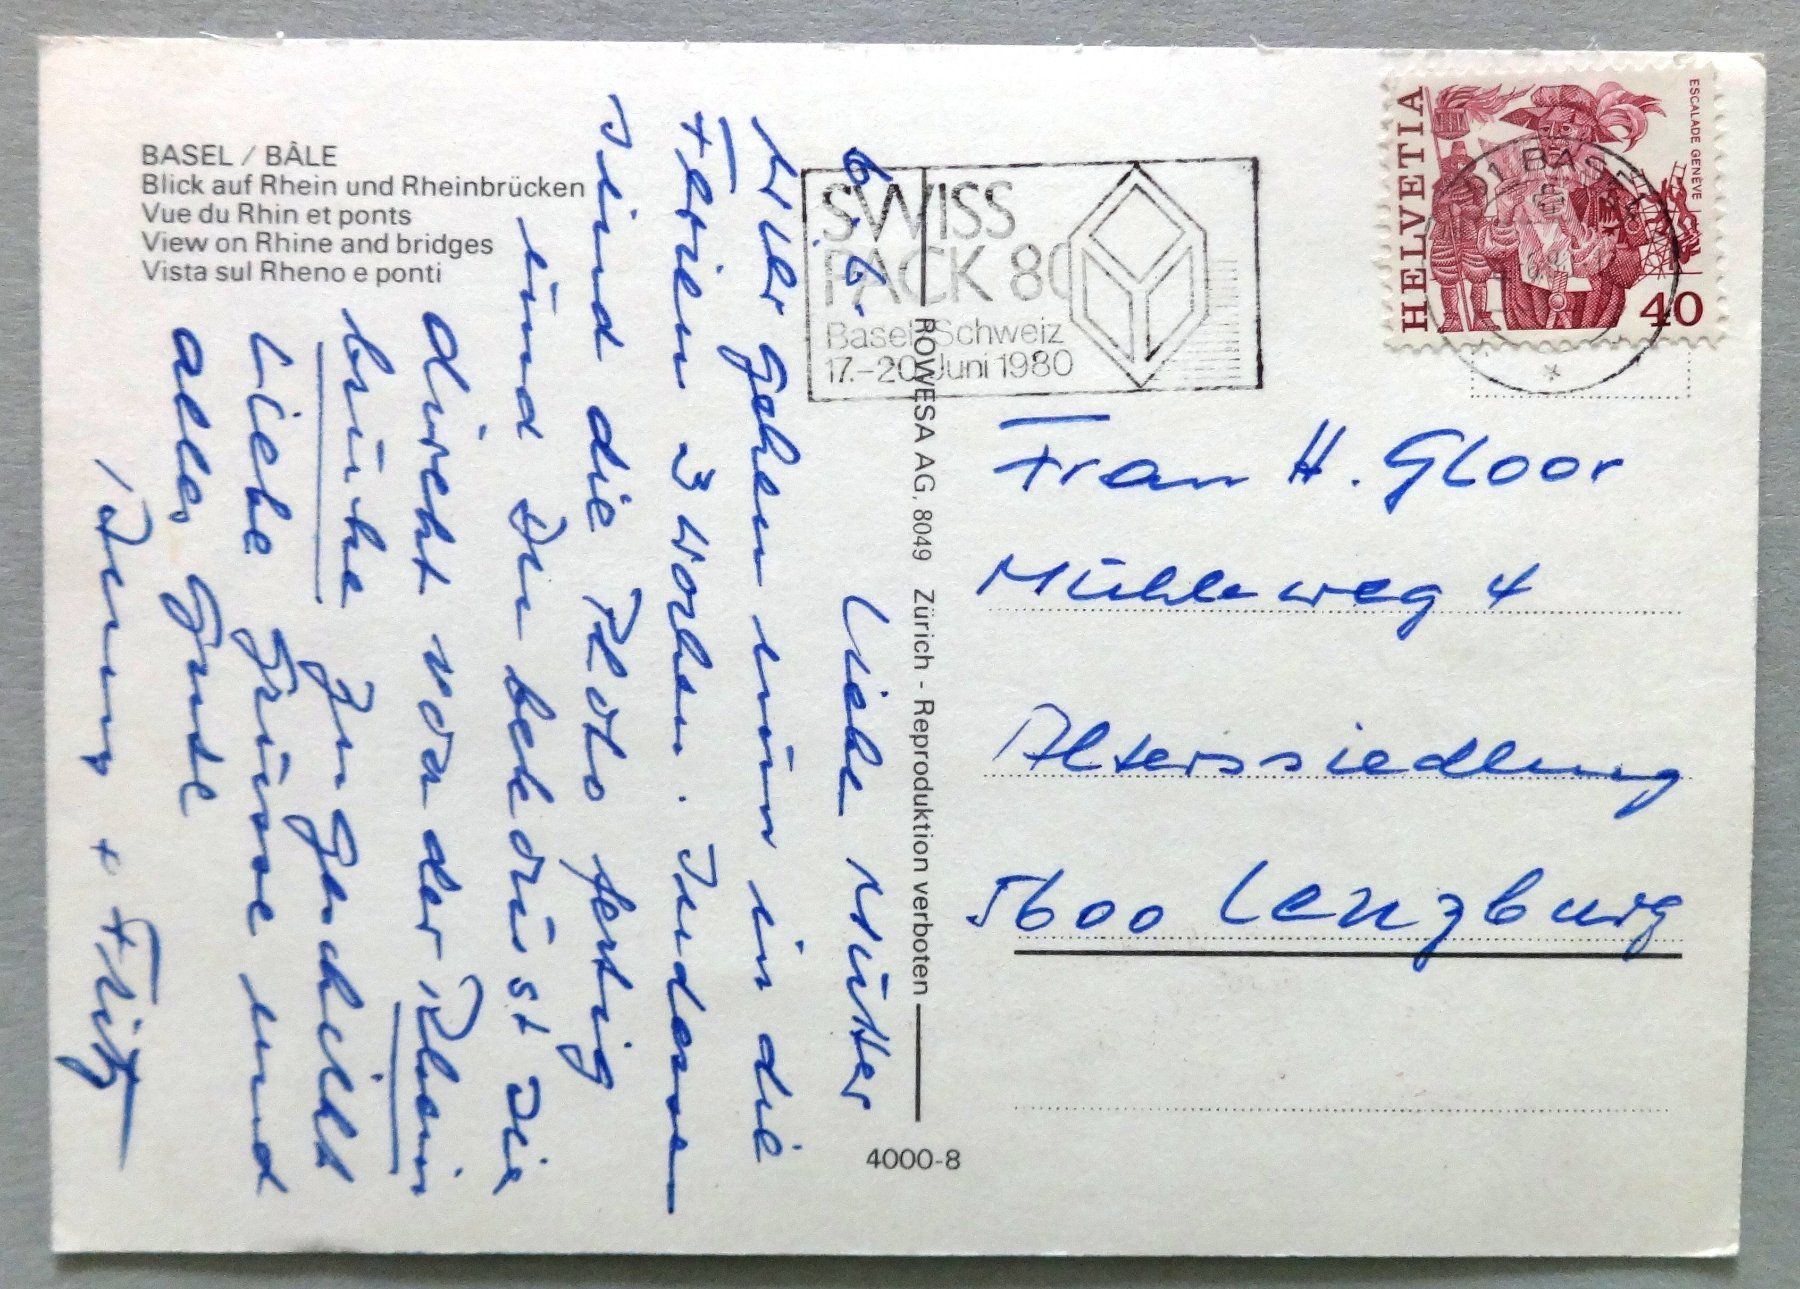 BASEL / BÂLE
Blick auf Rhein und Rheinbrücken
Vue du Rhin et ponts
View on Rhine and bridges
Vista sul Rheno e ponti
SWISS
PACK 80
Basel Schweiz
17.–20. Juni 1980
HELVETIA
ESCALADE GENÈVE
40
BASEL
ROWESA AG, 8049 Zürich - Reproduktion verboten
4000-8
Frau H. Gloor
Mühleweg 4
Alterssiedlung
5600 Lenzburg
6.6. Liebe Mutter
Wir gehen nun in die
Ferien 3 Wochen. Indessen
sind die Photo fertig
und Du bekommst sie
direkt von der Rhein
brücke zugeschickt
Liebe Grüsse und
alles Gute
+ Fritz